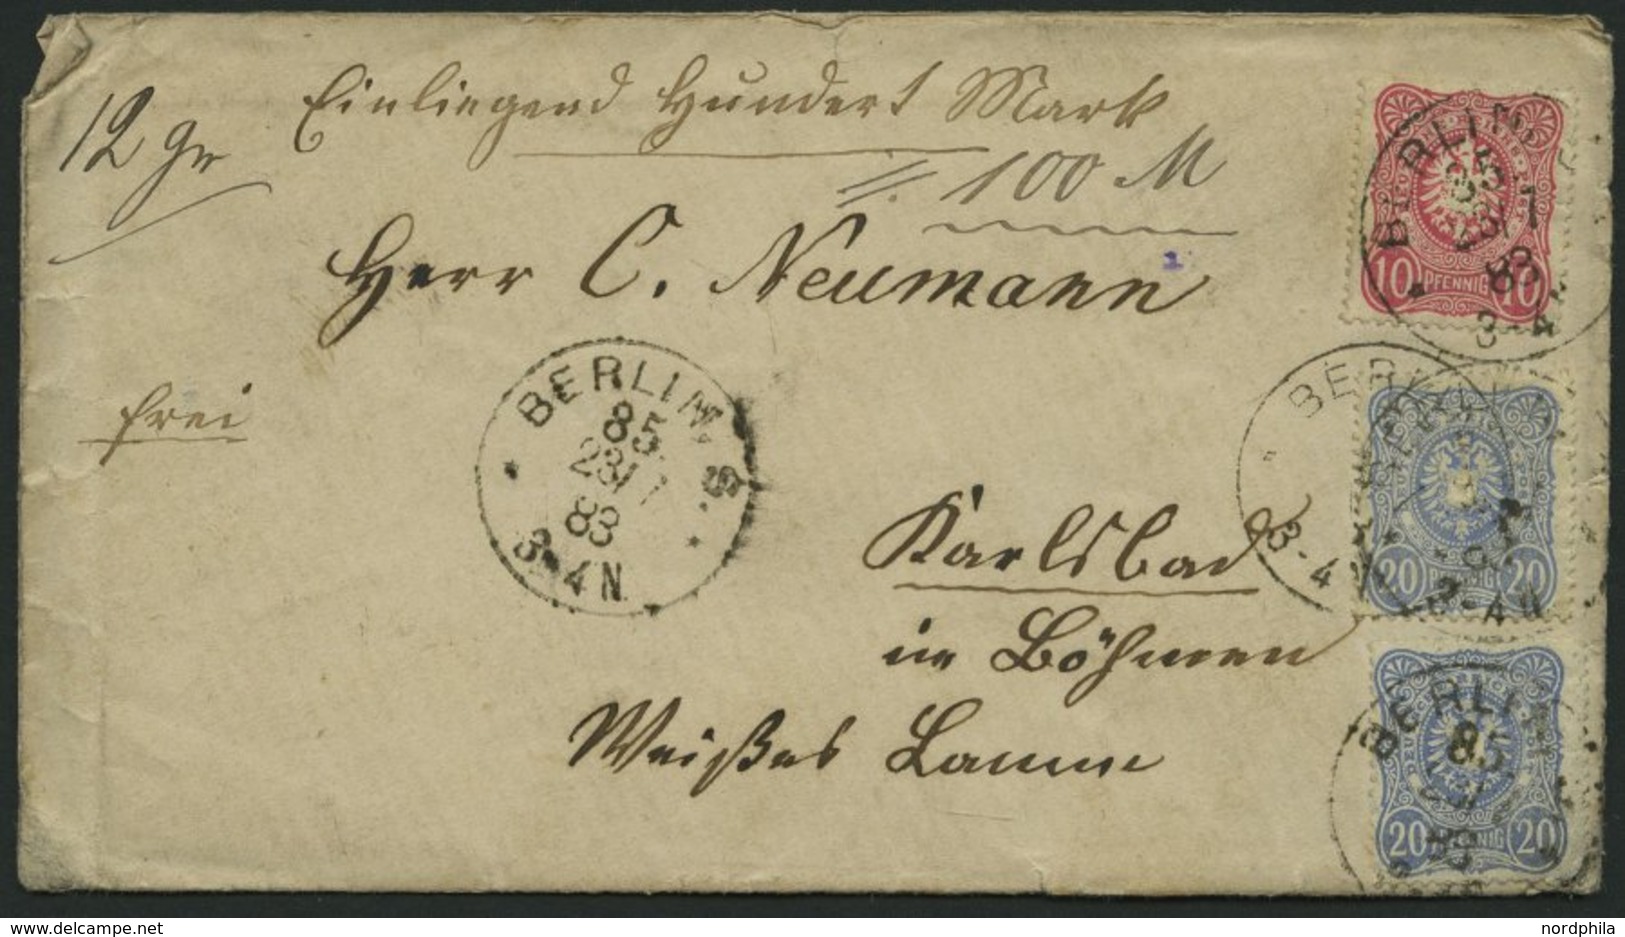 Einliegend Hundert Mark
12 gr
= 100 M
Herr C. Neumann
frei
Karlsbad
in Böhmen
Weißes Lamm
BERLIN, S.
85
23/7
83
3-4N.
BERLIN
85
23/7
83
3-4
10 PFENNIG 10
BERLIN
3-4
3-4N
20 PFENNIG 20
BERLIN
85
20 PFENNIG 20
nordphila